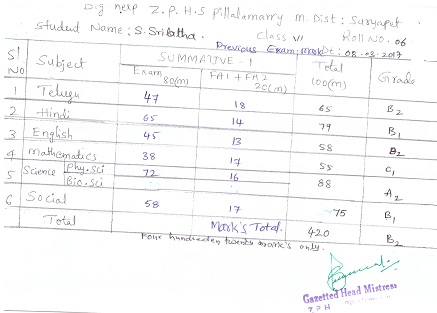 Z.P.H.S Pillalamarry m. Dist: Suryapet
Student Name: S. Srilatha. Class VI Roll No. 06
Previous Exam mark Dt: 08.03.2017
Sl No Subject SUMMATIVE - 1 Total 100(m) Grade
Exam 80(m) FA1 + FA2 20(m)
1 Telugu 47 18 65 B2
2 Hindi 65 14 79 B1
3 English 45 13 58 B2
4 Mathematics 38 17 55 C1
5 Science Phy.Sci 72 16 88 A2
Bio.Sci
6 Social 58 17 75 B1
Total Mark's Total. 420 B2
Four hundreden twenty mark's only.
Gazetted Head Mistress
Z.P.H